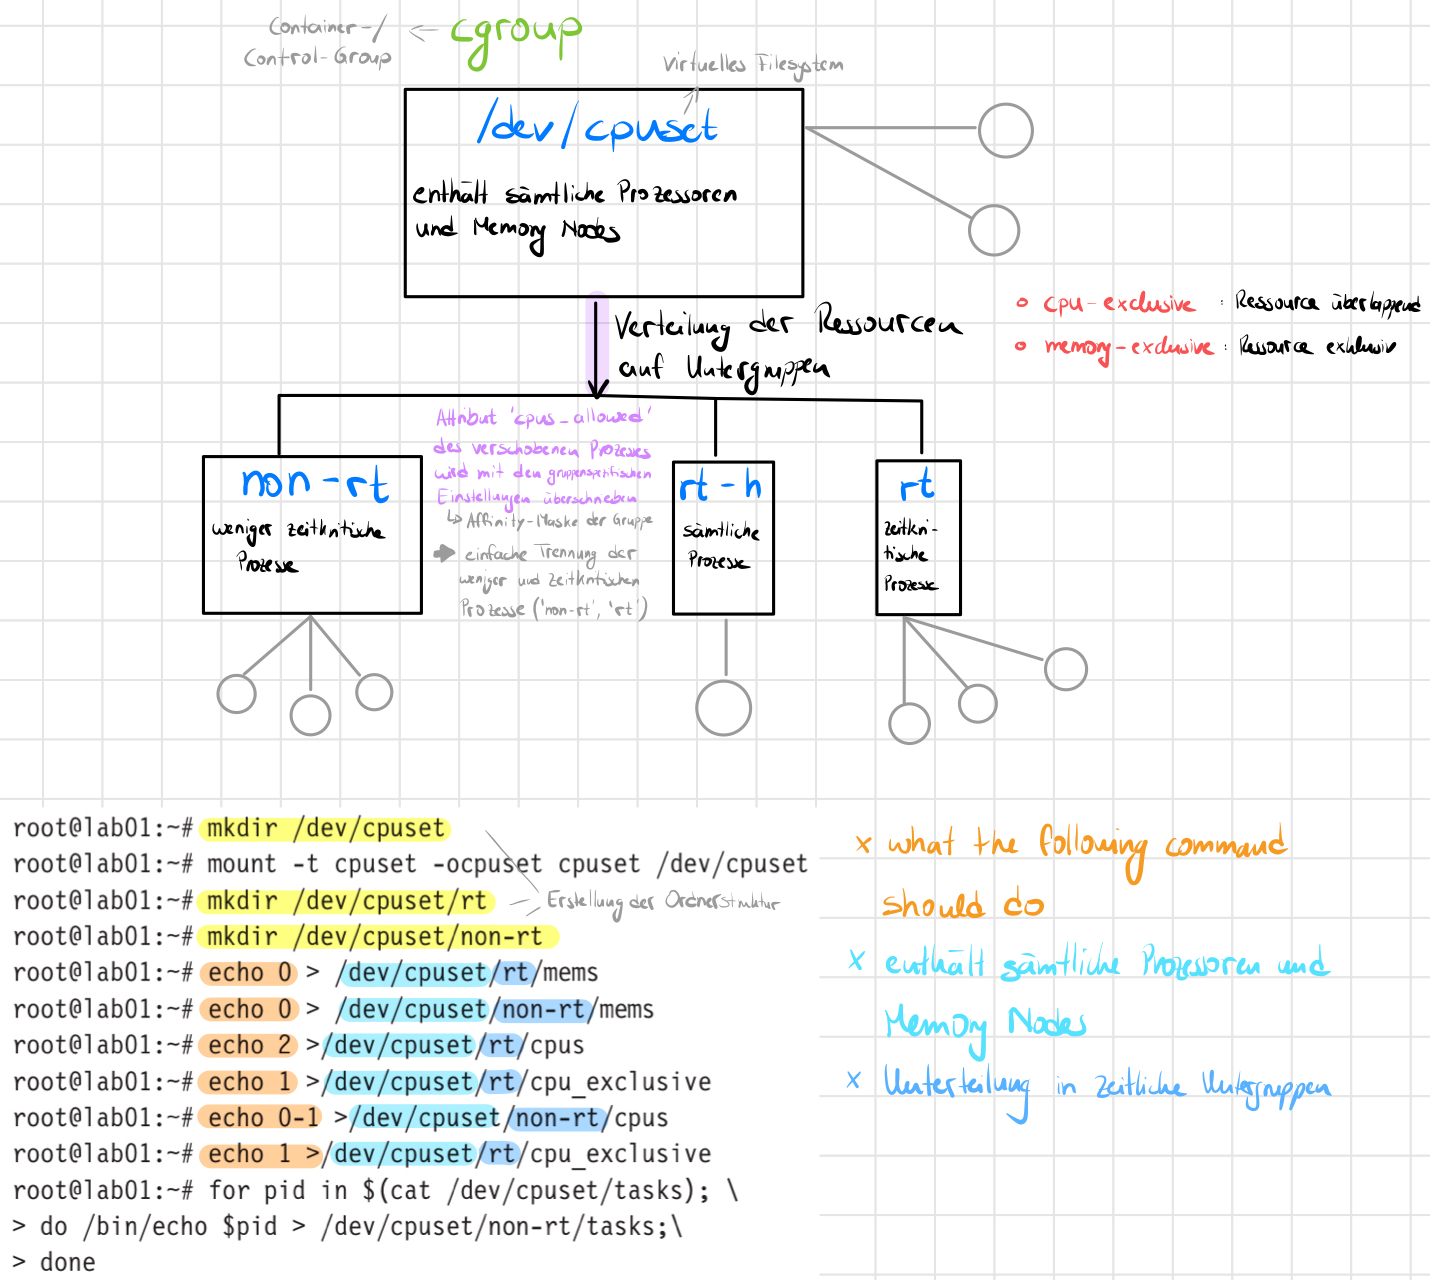 Container-/
Control-Group
← cgroup
Virtuelles Filesystem
/dev/cpuset
enthält sämtliche Prozessoren
und Memory Nodes
Verteilung der Ressourcen
auf Untergruppen
cpu-exclusive : Ressource überlappend
memory-exclusive : Ressource exklusiv
Attribut 'cpus_allowed'
des verschobenen Prozesses
wird mit den gruppenspezifischen
Einstellungen überschrieben
↳ Affinity-Maske der Gruppe
→ einfache Trennung der
weniger und zeitkritischen
Prozesse ('non-rt', 'rt')
non-rt
weniger zeitkritische
Prozesse
rt-h
sämtliche
Prozesse
rt
zeitkri-
tische
Prozesse
root@lab01:~# mkdir /dev/cpuset
root@lab01:~# mount -t cpuset -ocpuset cpuset /dev/cpuset
root@lab01:~# mkdir /dev/cpuset/rt
Erstellung der Ordnerstruktur
root@lab01:~# mkdir /dev/cpuset/non-rt
root@lab01:~# echo 0 > /dev/cpuset/rt/mems
root@lab01:~# echo 0 > /dev/cpuset/non-rt/mems
root@lab01:~# echo 2 >/dev/cpuset/rt/cpus
root@lab01:~# echo 1 >/dev/cpuset/rt/cpu_exclusive
root@lab01:~# echo 0-1 >/dev/cpuset/non-rt/cpus
root@lab01:~# echo 1 >/dev/cpuset/rt/cpu_exclusive
root@lab01:~# for pid in $(cat /dev/cpuset/tasks); \
> do /bin/echo $pid > /dev/cpuset/non-rt/tasks;\
> done
x what the following command
should do
x enthält sämtliche Prozessoren und
Memory Nodes
x Unterteilung in zeitliche Untergruppen